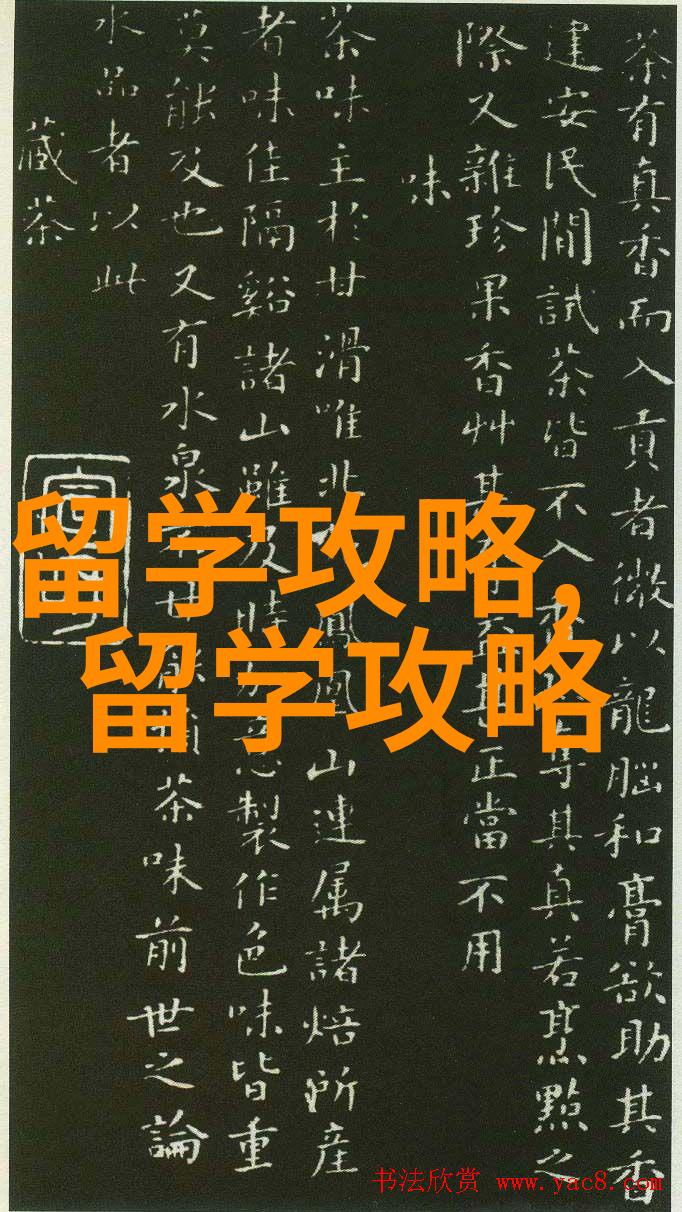 茶有真香而入貢者微以龍腦和膏欲助其香
建安民間試茶皆不入香其真若烹點之
際又雜珍果香艸其正當不用
味
茶味主於甘滑唯北鳳凰山連属諸焙所產
者味佳隔谿諸山雖及時製作色味皆重
莫能及也又有水泉甘茶味前世之論
水品者以此
藏茶
留学攻略,
留学攻略
书法欣赏 www.yac8.com